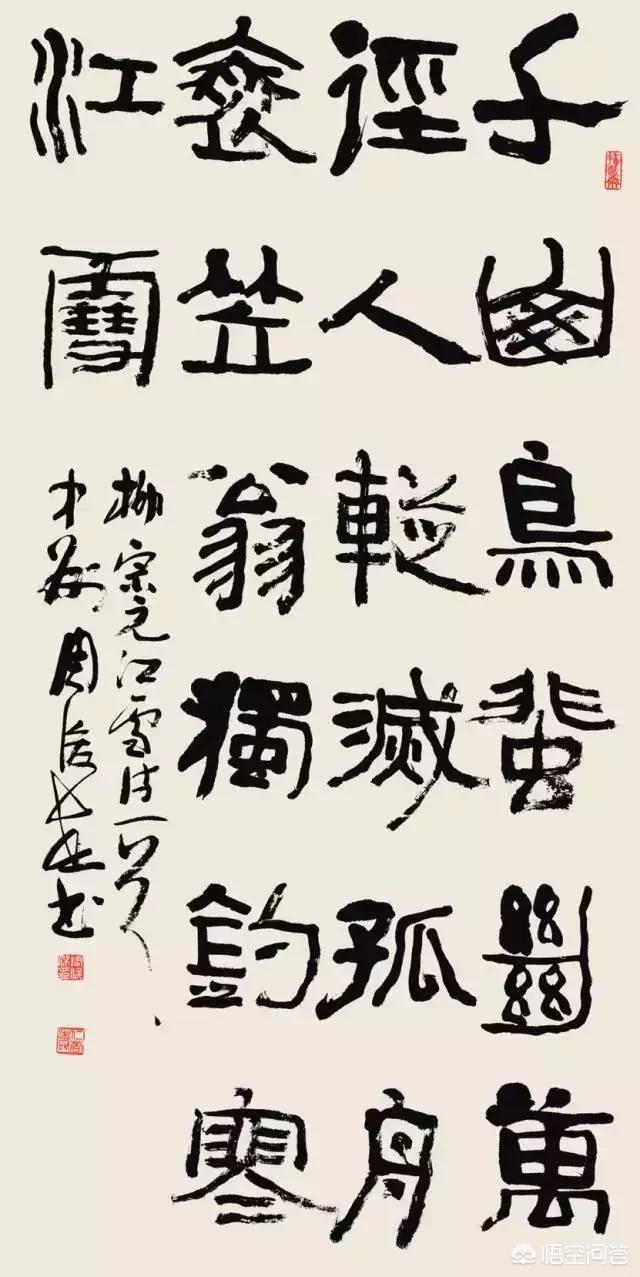 千山鳥蜚絕萬
徑人蹤滅孤舟
蓑笠翁獨釣寒
江雪
柳宗元江雪诗一首
周俊杰书
悟空问答